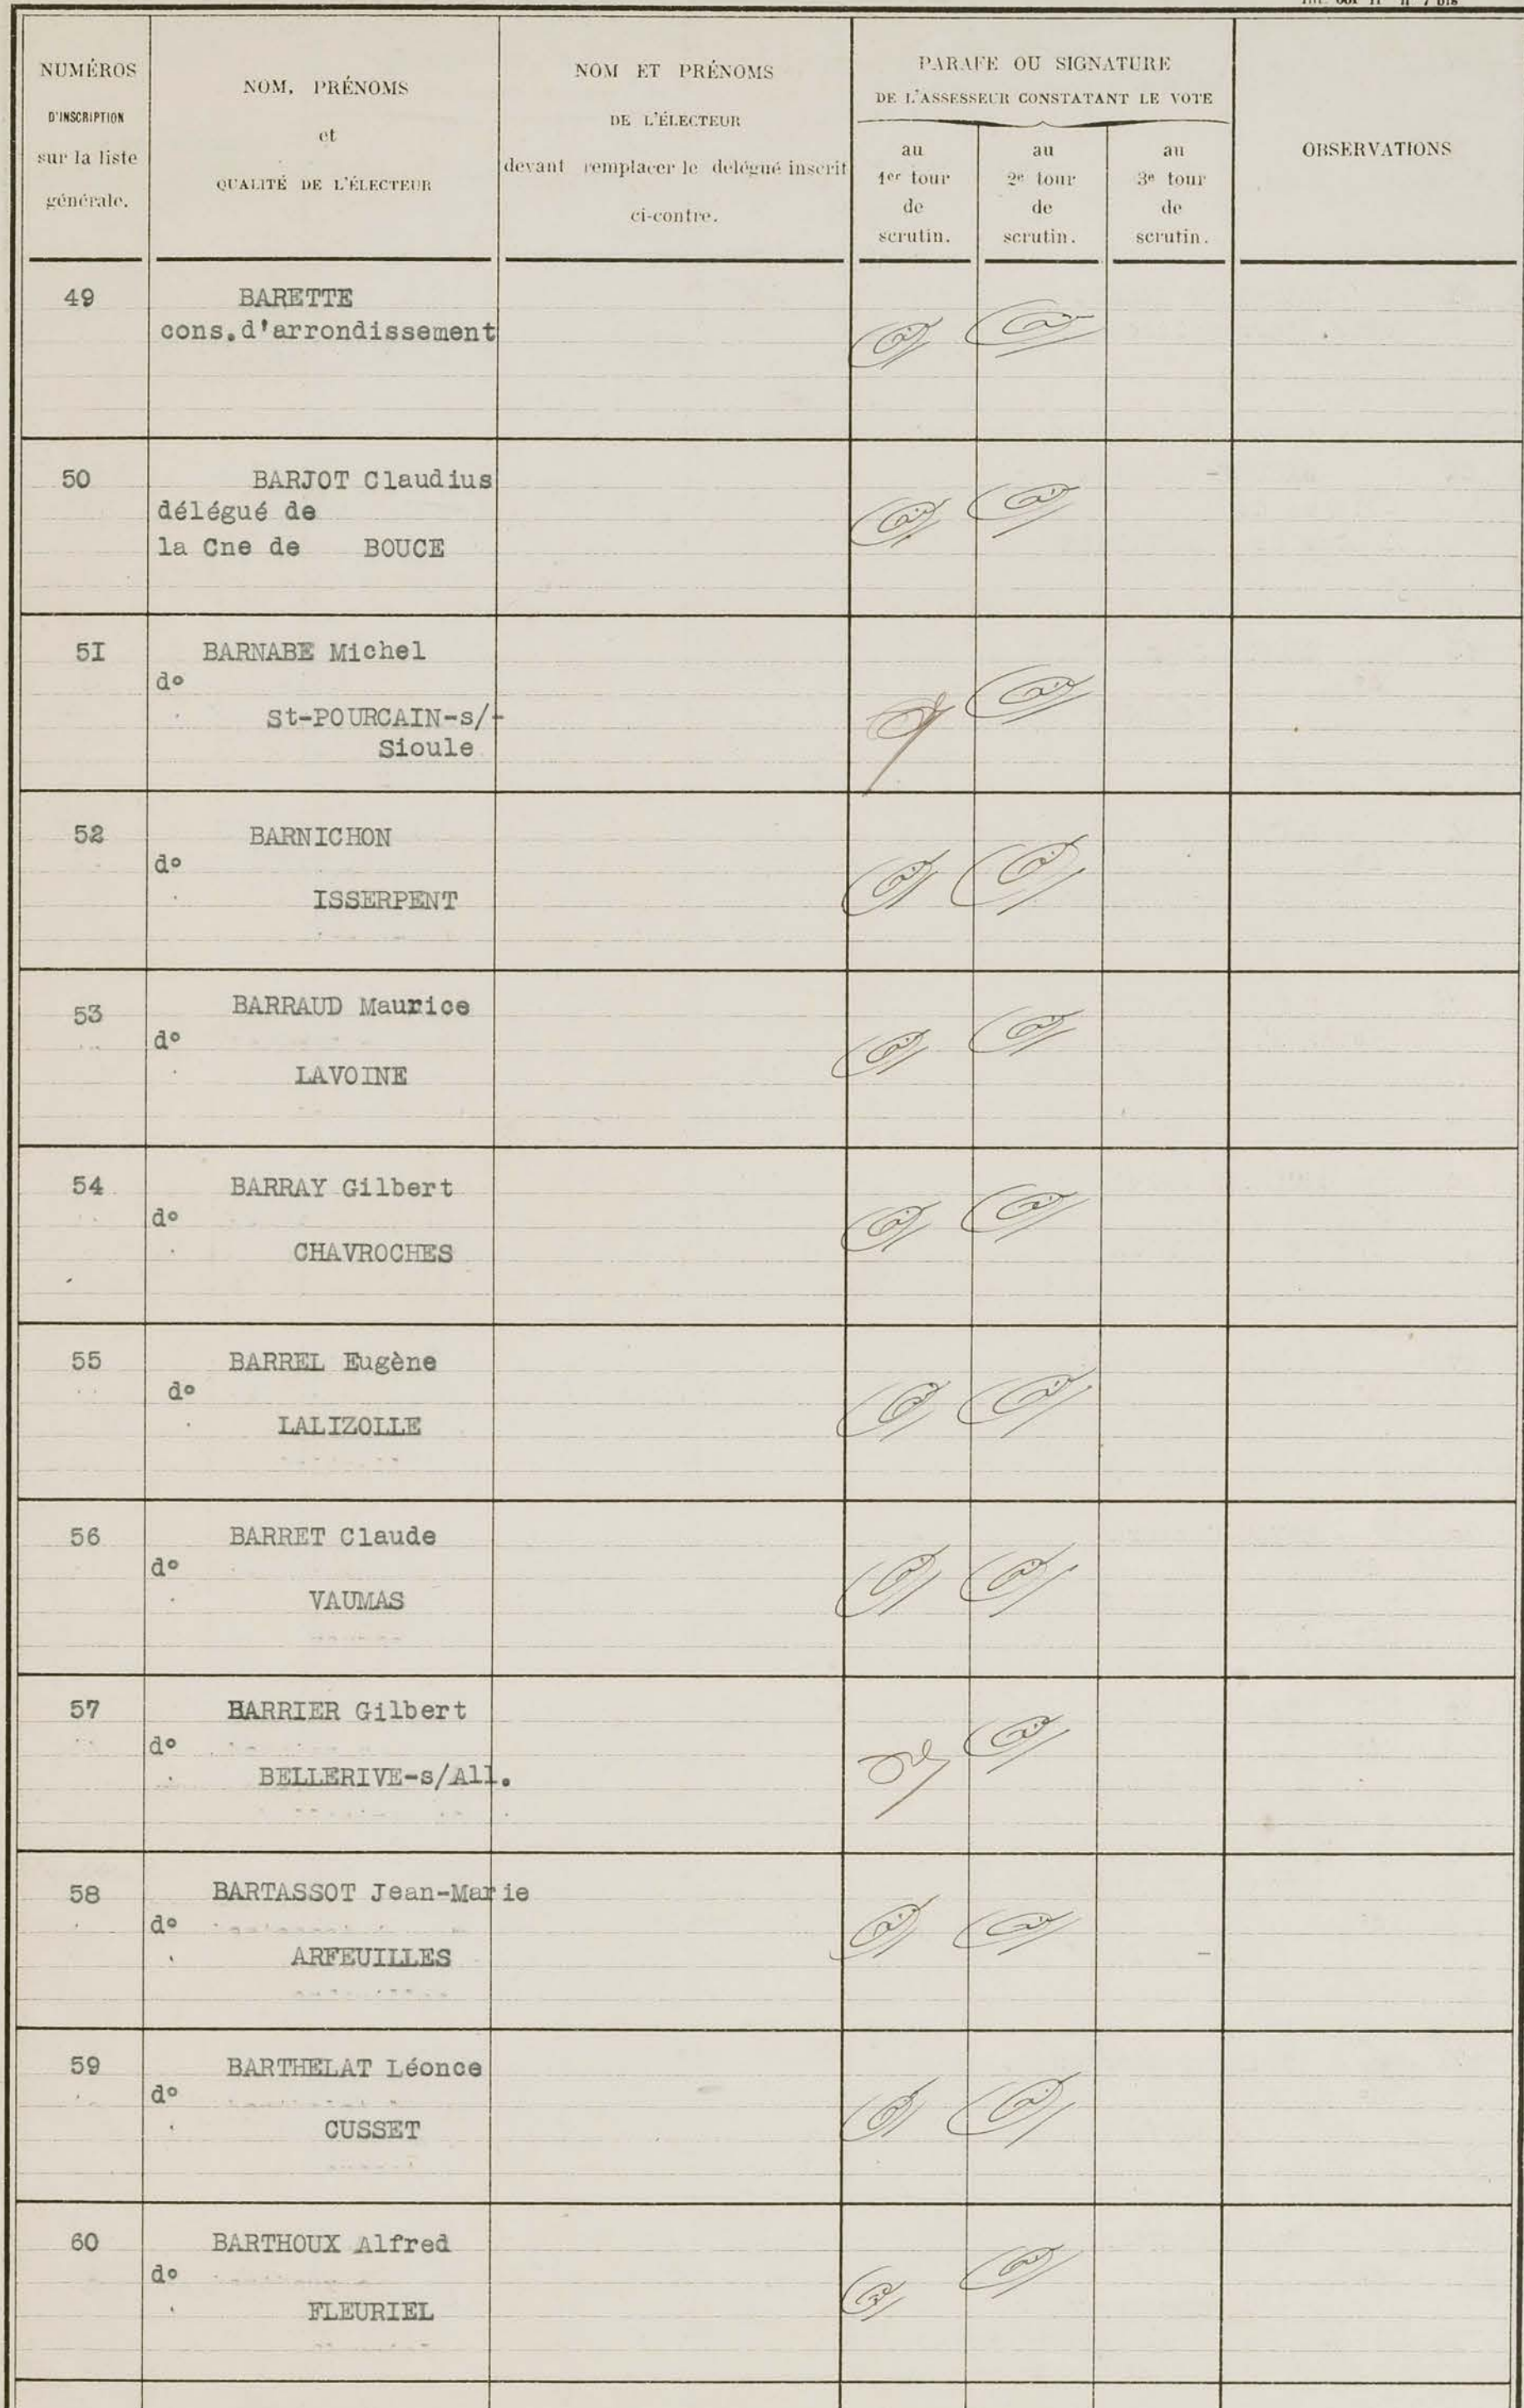 NUMÉROS
D'INSCRIPTION
sur la liste
générale.
NOM, PRÉNOMS
et
QUALITÉ DE L'ÉLECTEUR
NOM ET PRÉNOMS
DE L'ÉLECTEUR
devant remplacer le délégué inscrit
ci-contre.
PARAFE OU SIGNATURE
DE L'ASSESSEUR CONSTATANT LE VOTE
au
1er tour
de
scrutin.
au
2e tour
de
scrutin.
au
3e tour
de
scrutin.
OBSERVATIONS
49 BARETTE
cons.d'arrondissement
50 BARJOT Claudius
délégué de
la Cne de BOUCE
5I BARNABE Michel
d°
St-POURCAIN-s/
Sioule
52 BARNICHON
d°
ISSERPENT
53 BARRAUD Maurice
d°
LAVOINE
54 BARRAY Gilbert
d°
CHAVROCHES
55 BARREL Eugène
d°
LALIZOLLE
56 BARRET Claude
d°
VAUMAS
57 BARRIER Gilbert
d°
BELLERIVE-s/All.
58 BARTASSOT Jean-Marie
d°
ARFEUILLES
59 BARTHELAT Léonce
d°
CUSSET
60 BARTHOUX Alfred
d°
FLEURIEL